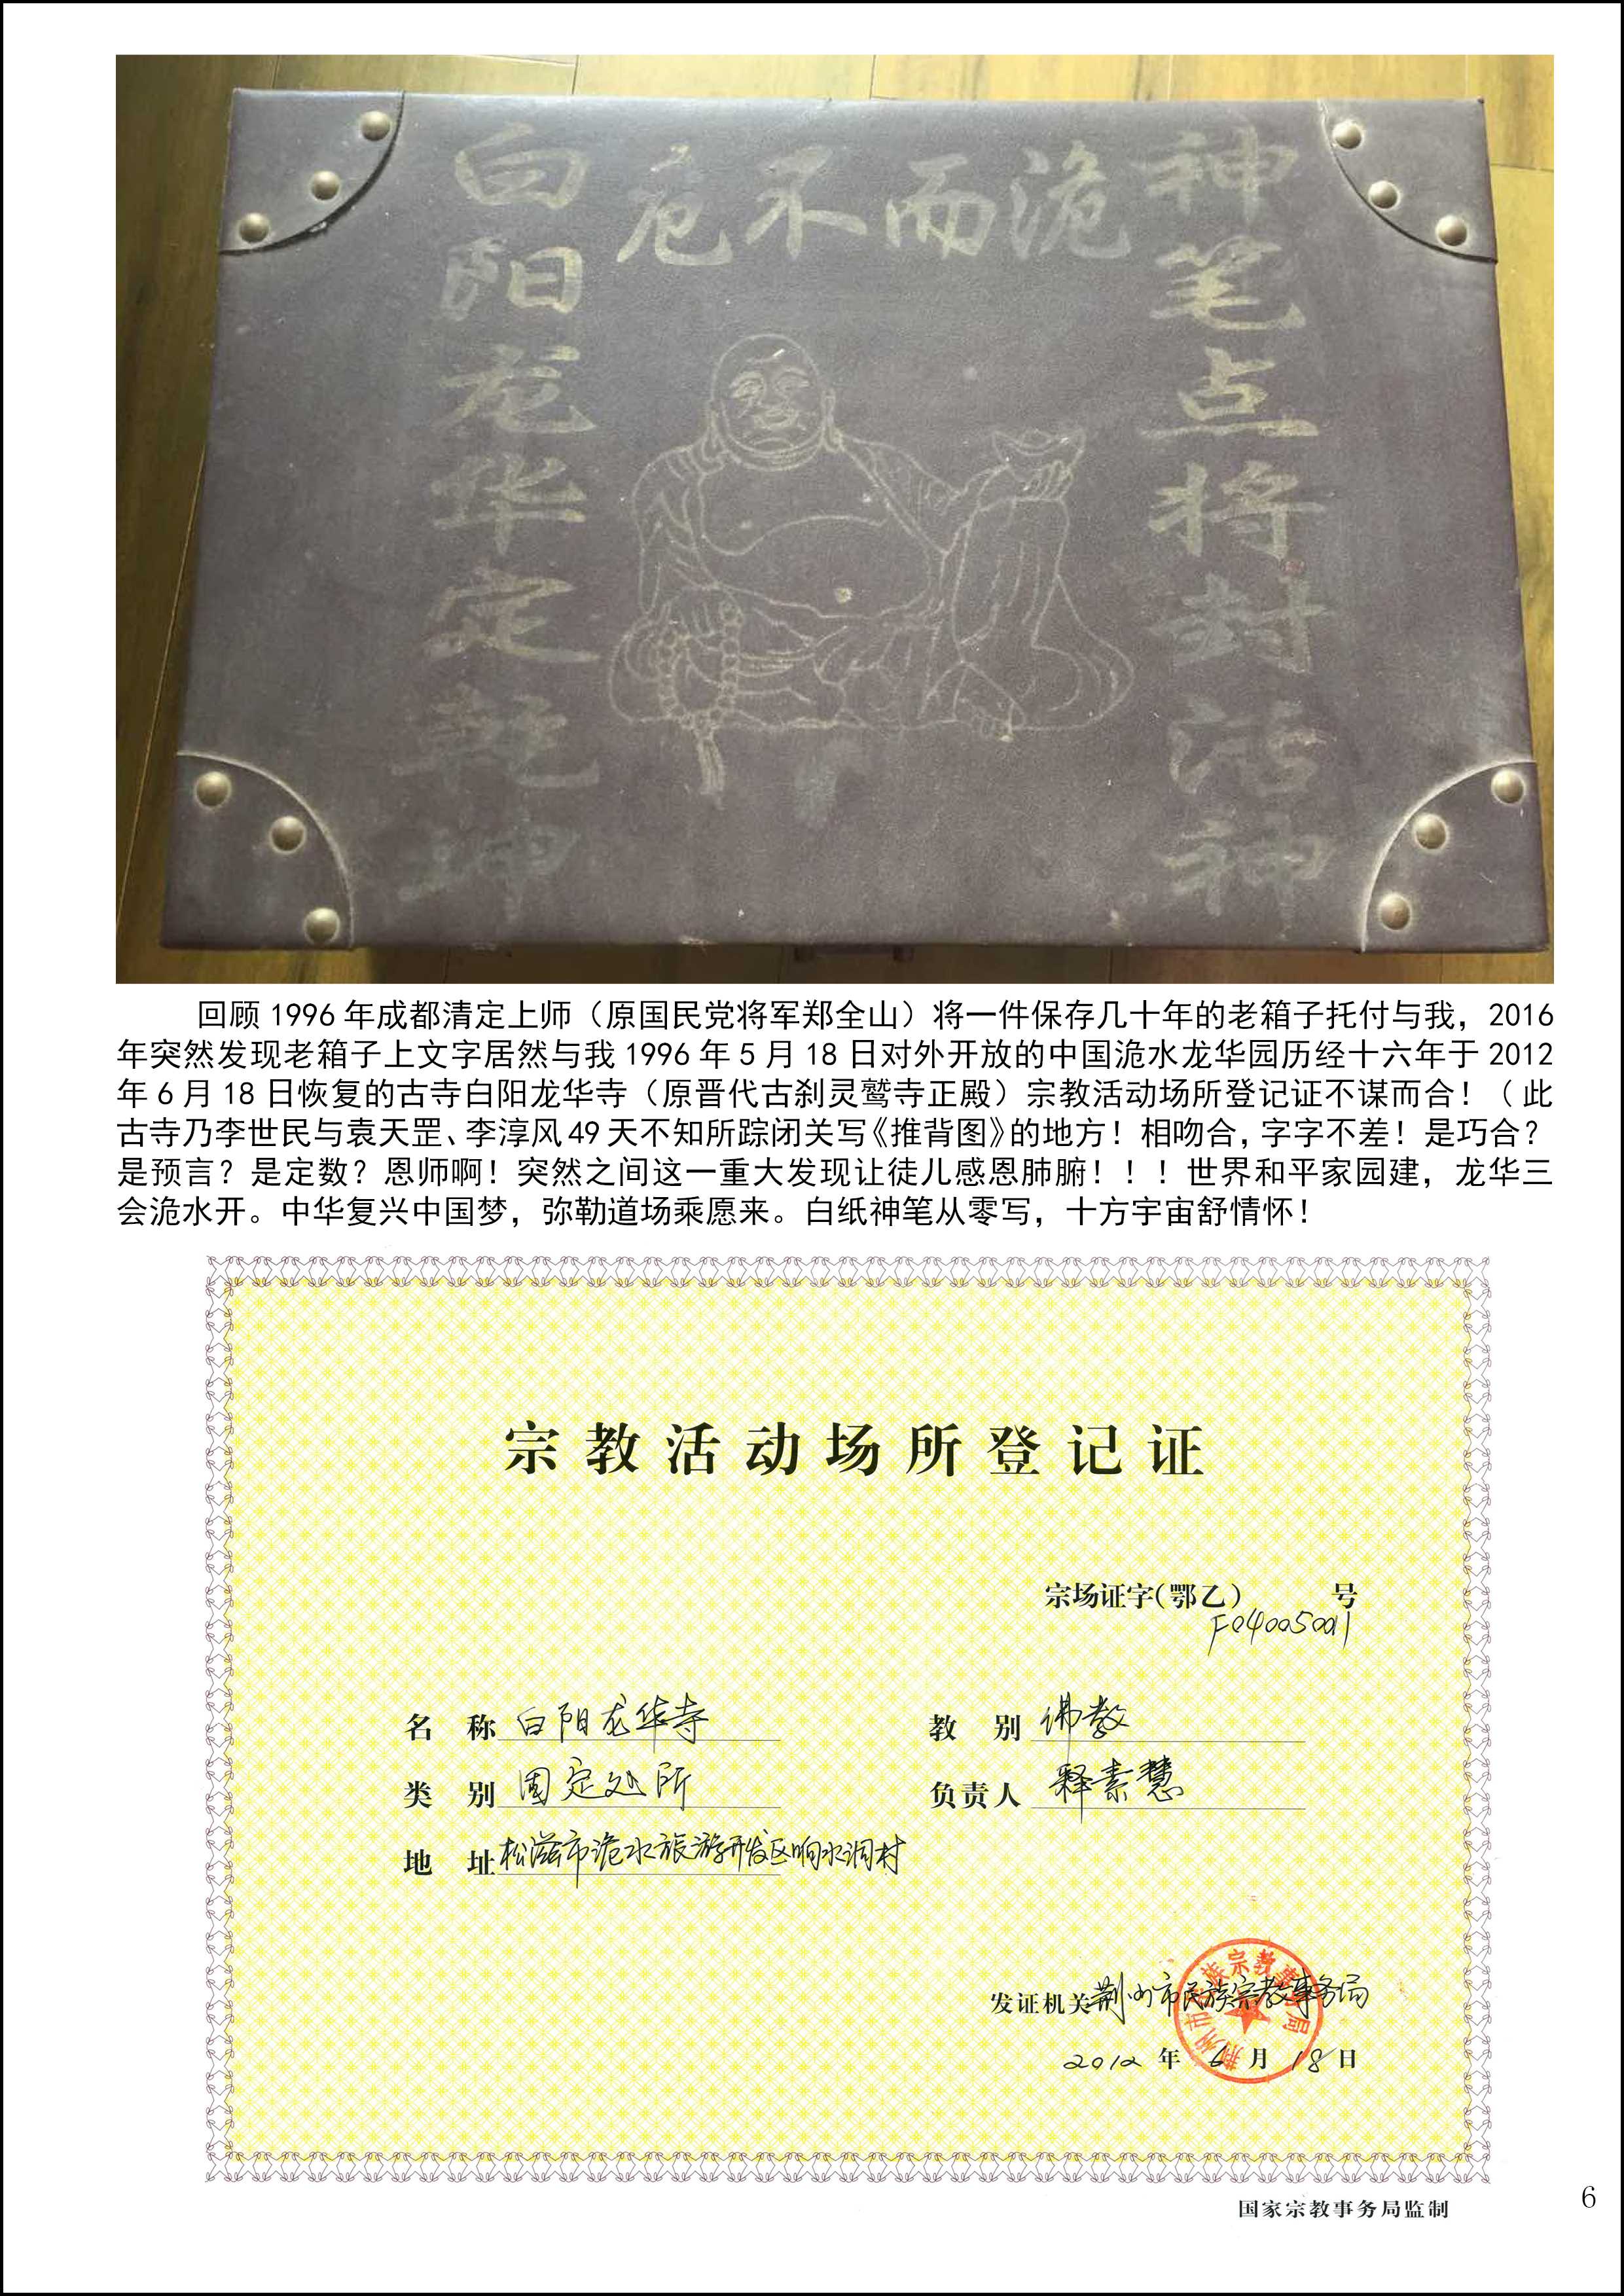 神笔点将封活神
危不而洈
白阳龙华定乾坤
回顾 1996 年成都清定上师（原国民党将军郑全山）将一件保存几十年的老箱子托付与我，2016
年突然发现老箱子上文字居然与我 1996 年 5 月 18 日对外开放的中国洈水龙华园历经十六年于 2012
年 6 月 18 日恢复的古寺白阳龙华寺（原晋代古刹灵鹫寺正殿）宗教活动场所登记证不谋而合！（ 此
古寺乃李世民与袁天罡、李淳风 49 天不知所踪闭关写《推背图》的地方！相吻合，字字不差！是巧合？
是预言？是定数？恩师啊！突然之间这一重大发现让徒儿感恩肺腑！！！世界和平家园建，龙华三
会洈水开。中华复兴中国梦，弥勒道场乘愿来。白纸神笔从零写，十方宇宙舒情怀！
宗教活动场所登记证
宗场证字（鄂乙） 号
F04005001
名 称 白阳龙华寺 教 别 佛教
类 别 固定处所 负责人 释素慧
地 址 松滋市洈水旅游开发区响水洞村
发证机关 荆州市民族宗教事务局
荆州市民族宗教事务局
2012 年 6 月 18 日
国家宗教事务局监制
6